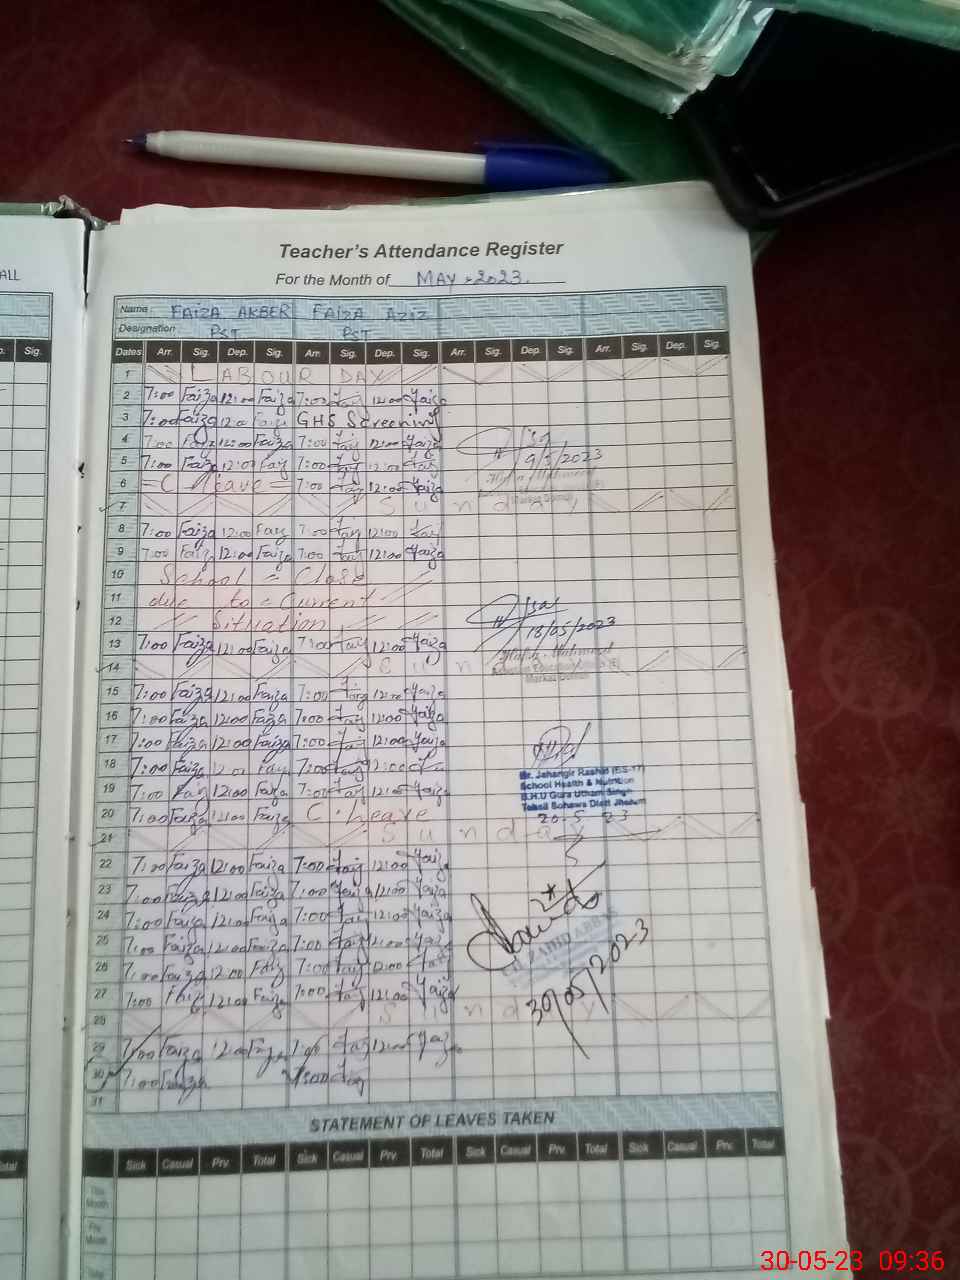 ALL
Sig.
Teacher's Attendance Register
For the Month of MAY-2023.
Name: FAIZA AKBER FAIZA AZIZ
Designation: PST PST
Dates Arr. Sig. Dep. Sig. Arr. Sig. Dep. Sig. Arr. Sig. Dep. Sig. Arr. Sig. Dep. Sig.
1 LABOUR DAY
2 7:00 Faiza 12:00 Faiza 7:00 Faiz 12:00 Faiza
3 7:00 Faiza 12:00 Faiza GHS Screening
4 7:00 Faiz 12:00 Faiza 7:00 Faiz 12:00 Faiza
5 7:00 Faiz 12:00 Faiz 7:00 Faiz 12:00 Faiz
9/5/2023
6 C leave 7:00 Faiz 12:00 Faiza
7 Sunday
8 7:00 Faiza 12:00 Faiz 7:00 Faiz 12:00 Faiz
9 7:00 Faiz 12:00 Faiza 7:00 Faiz 12:00 Faiza
10 School = Close
11 due to = Current
12 Situation
18/05/2023
13 7:00 Faiza 12:00 Faiza 7:00 Faiz 12:00 Faiza
14 Sun
15 7:00 Faiza 12:00 Faiza 7:00 Faiz 12:00 Faiza
16 7:00 Faiza 12:00 Faiza 7:00 Faiz 12:00 Faiza
17 7:00 Faiza 12:00 Faiza 7:00 Faiz 12:00 Faiza
18 7:00 Faiza 12:00 Faiz 7:00 Faiz 12:00
19 7:00 Faiz 12:00 Faiza 7:00 Faiz 12:00 Faiza
Mr. Jahangir Rashid (BS-17)
School Health & Nutrition
B.H.U Gura Uttam Singh
Tehsil Sohawa Distt Jhelum
20-5-23
20 7:00 Faiza 12:00 Faiza C. leave
21 Sunday
22 7:00 Faiza 12:00 Faiza 7:00 Faiz 12:00 Faiza
23 7:00 Faiza 12:00 Faiza 7:00 Faiza 12:00 Faiza
24 7:00 Faiza 12:00 Faiza 7:00 Faiz 12:00 Faiza
25 7:00 Faiza 12:00 Faiza 7:00 Faiz 12:00 Faiza
ZAHID ABBAS
26 7:00 Faiza 12:00 Faiz 7:00 Faiz 12:00 Faiz
27 7:00 Faiz 12:00 Faiza 7:00 Faiz 12:00 Faiza
30/05/2023
28 Sunday
29 7:00 Faiza 12:00 Faiza 7:00 Faiz 12:00 Faiza
30 7:00 Faiza 7:00 Faiz
31
STATEMENT OF LEAVES TAKEN
Total Sick Casual Prv. Total Sick Casual Prv. Total Sick Casual Prv. Total Sick Casual Prv. Total
This Month
Prv. Month
Total
30-05-23 09:36